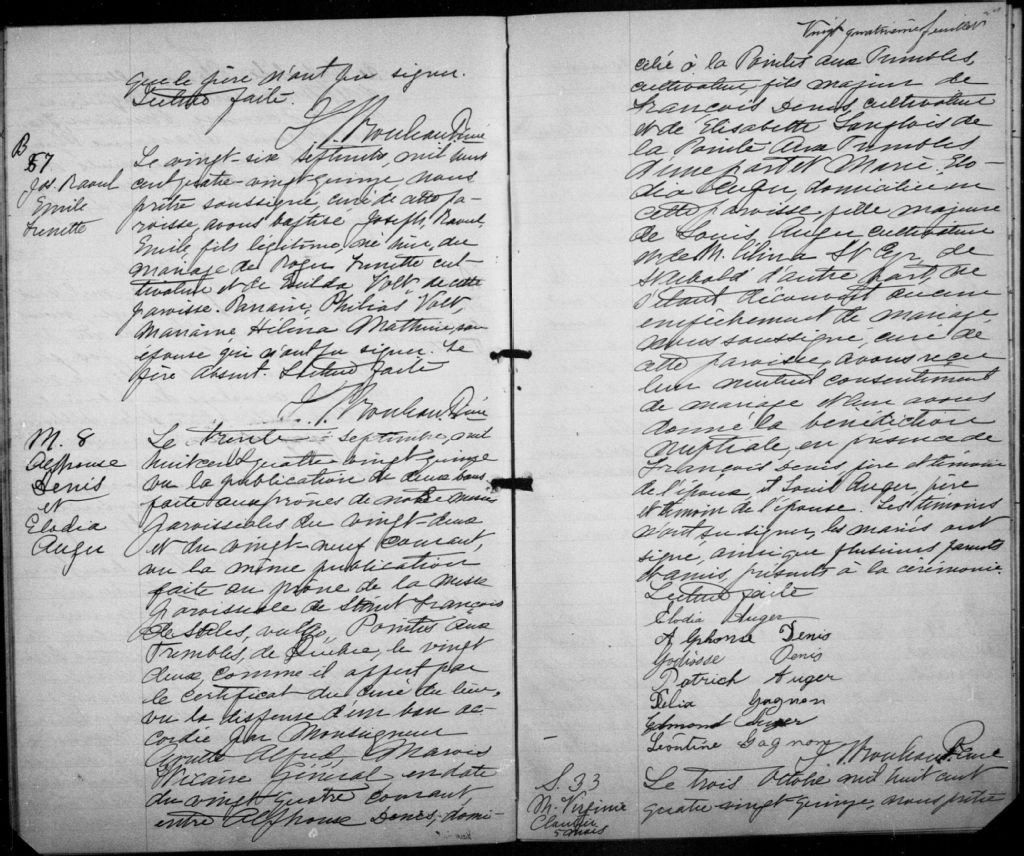 que le père n'ont pu signer.
Lecture faite.
B
57
Js. Raoul
Emile
Le vingt-six septembre, mil huit
cent quatre vingt quinze, nous
prêtre soussigné, curé de cette pa-
roisse, avons baptisé Joseph, Raoul,
Emile, fils légitime, né hier, du
mariage de Roger cul-
tivateur et de de cette
paroisse. Parrain, Philias
Marraine, Mathieu, son
épouse qui n'ont su signer. Le
père absent. Lecture faite
M. 8
Alphonse
Denis
et
Elodia
Auger
Le trente septembre, mil
huit cent quatre vingt quinze
vu la publication de deux bans
faite aux prônes de nos messes
paroissiales du vingt-deux
et du vingt-neuf courant,
vu la même publication
faite au prône de la messe
paroissiale de Saint François
de Sales, vulgo, Pointes aux
Trembles, de Québec, le vingt
deux, comme il appert par
le certificat du curé du lieu,
vu la dispense d'un ban ac-
cordée par Monseigneur
Alfred, Marois
Vicaire Général, en date
du vingt quatre courant,
entre Alphonse Denis, domi-
Vingt quatrième feuillet
cilié à la Pointes aux Trembles,
cultivateur, fils majeur de
François Denis, cultivateur
et de Elisabette Langlois de
la Pointe aux Trembles
d'une part et Marie, Elo-
dia Auger, domiciliée en
cette paroisse, fille majeure
de Louis Auger cultivateur
et de M. Elina St Cyr, de
St Ubald d'autre part, ne
s'étant découvert aucun
empêchement de mariage
nous soussigné, curé de
cette paroisse, avons reçu
leur mutuel consentement
de mariage et leur avons
donné la bénédiction
nuptiale, en présence de
François Denis, père et témoin
de l'époux, et Louis Auger, père
et témoin de l'épouse. Les témoins
n'ont su signer, les mariés ont
signé, ainsi que plusieurs parents
et amis, présents à la cérémonie.
Lecture faite
Elodia Auger
Alphonse Denis
Denis
Patrick Auger
Délia Gagnon
Edmond Auger
Léontine Gagnon
S. 33
M. Virginie
5 mois
Le trois Octobre mil huit cent
quatre vingt quinze, nous prêtre